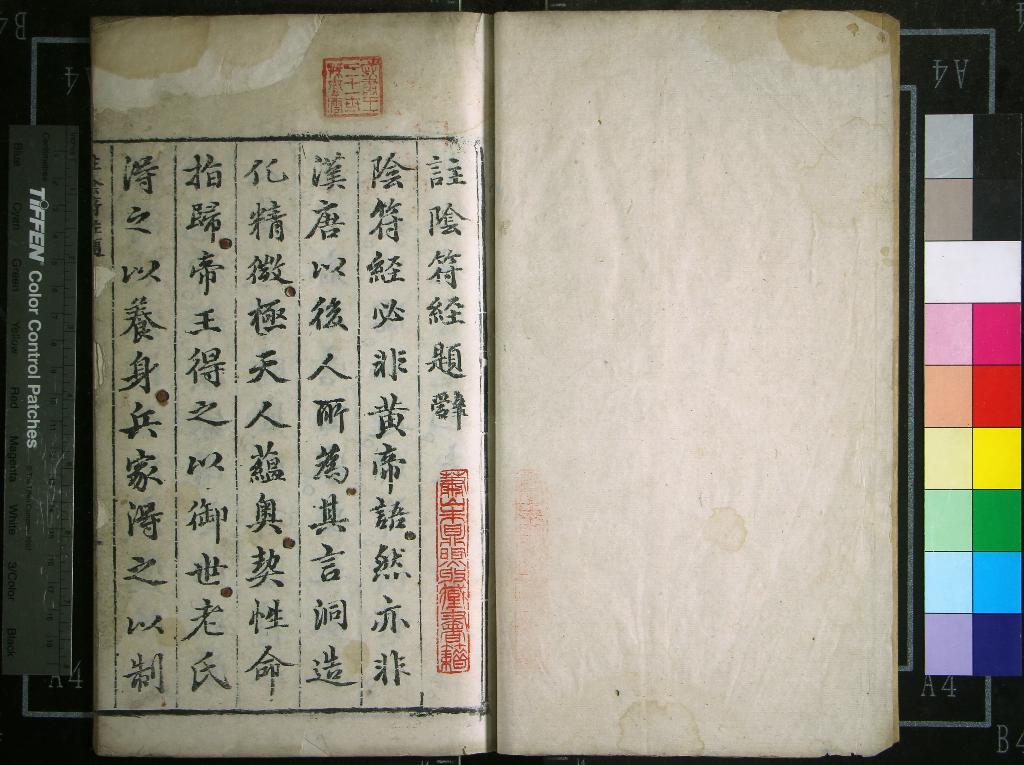 註陰符經題辭
陰符經必非黃帝語然亦非
漢唐以後人所為其言洞造
化精微極天人蘊奧契性命
指歸帝王得之以御世老氏
得之以養身兵家得之以制
TIFFEN Color Control Patches
Blue Cyan Green Yellow Red Magenta White 3/Color Black
A4
A4
A4
A4
B4